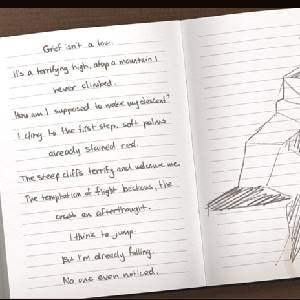 Grief isn't a low.
It's a terrifying high, atop a mountain I
never climbed.
How am I supposed to make my descent?
I cling to the first step, soft palms
already stained red.
The steep cliffs terrify and welcome me.
The temptation of flight beckons, the
crash an afterthought.
I think to jump.
But I'm already falling.
No one even noticed.